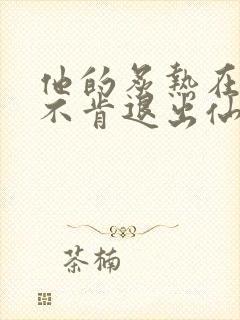 他的炙熱在
不肯退出仙
茶楠